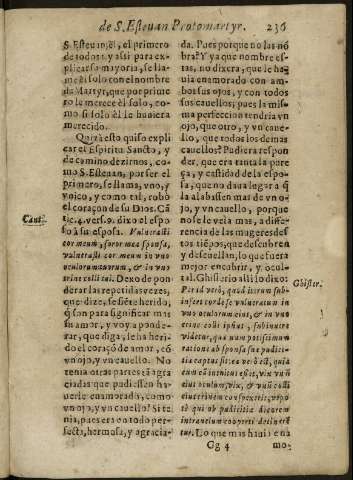 de S. Esteuan Protomartyr. 236
S. Esteuan; êl, el primero
de todos: y assi para ex-
plicar su mayoria, se lla-
me êl solo con el nombre
de Martyr, que por prime
ro le merece êl solo, co-
mo si solo êl le huuiera
merecido.
Quizà esto quiso expli
car el Espiritu Sancto, y
de camino dezirnos, co-
mo S. Esteuan, por ser el
primero, se llama, vno, y
vnico, y como tal, robó
el coraçon de su Dios. Cã
tic. 4. vers. 9. dixo el espo
so a su esposa. Vulnerasti
cor meum, soror mea sponsa,
vulnerasti cor meum in vno
oculorum tuorum, & in vno
crine colli tui. Dexo de pon
derar las repetidas vezes,
que dize, se siẽte herido,
q̃ son para significar mas
su amor, y voy a ponde-
rar, que diga, le ha heri-
do el coraçõ de amor, cõ
vn ojo, y vn cauello. No
tenia otras partes tã agra
ciadas que pudiessen ha-
uerle enamorado, como
vn ojo, y vn cauello? Si te
nia, pues era en todo per-
fecta, hermosa, y agracia-
Cant.
da. Pues porque no las nõ
bra? Y ya que nombre es-
tas, no dixera, que le ha-
uia enamorado con am-
bos sus ojos, y con todos
sus cauellos; pues la mis-
ma perfeccion tendria vn
ojo, que otro, y vn caue-
llo, que todos los demas
cauellos? Pudiera respon
der, que era tanta la pure
ça, y castidad de la espo-
sa, que no daua lugar a q̃
la alabassen mas de vn o-
jo, y vn cauello, porque
no se le veìa mas, a diffe-
rencia de las mugeres des
tos tiẽpos, que descubren
y descuellan, lo que fuera
mejor encubrir, y ocul-
tar. Ghislerio alli lo dixo:
Per id verò, quod iterum sub-
infert cordi se vulneratum in
vno oculorum eius, & in vno
crine colli ipsius, subinnuere
videtur, quàm num potissimùm
ratione ab sponsa sue pudici-
tia captus sit: ea verò est, quia
eum cũ inenitus esset, vix vnũ
eius oculum, vix, & vnũ colli
eius crinem conspexerit, vt po-
tè qui ob pudicitia decorem
intencium oculorum tegeren-
tur. Lo que mas hauia ena
Ghisler.
Gg 4 mo-